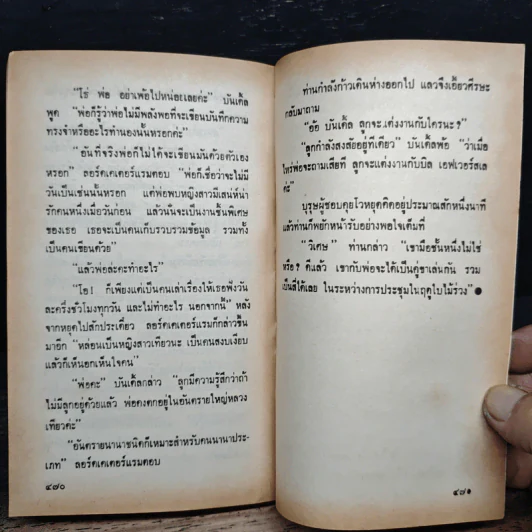 "โธ่ พ่อ อย่าเพ้อไปหน่อยเลยค่ะ" บันเดิ้ล
พูด "พ่อก็รู้ว่าพ่อไม่มีพลังพอที่จะเขียนบันทึกความ
ทรงจำหรืออะไรทำนองนั้นหรอกค่ะ"
"อันที่จริงพ่อก็ไม่ได้จะเขียนมันด้วยตัวเอง
หรอก" ลอร์ดเคเตอร์แรมตอบ "พ่อก็เชื่อว่าจะไม่มี
วันเป็นเช่นนั้นหรอก แต่พ่อพบหญิงสาวมีเสน่ห์น่า
รักคนหนึ่งเมื่อวันก่อน แล้วนั่นจะเป็นงานชิ้นพิเศษ
ของเธอ เธอจะเป็นคนเก็บรวบรวมข้อมูล รวมทั้ง
เป็นคนเขียนด้วย"
"แล้วพ่อล่ะคะทำอะไร"
"โอ! ก็เพียงแต่เป็นคนเล่าเรื่องให้เธอฟังวัน
ละครึ่งชั่วโมงทุกวัน และไม่ทำอะไร นอกจากนี้" หลัง
จากหยุดไปสักประเดี๋ยว ลอร์ดเคเตอร์แรมก็กล่าวขึ้น
มาอีก "หล่อนเป็นหญิงสาวเทียวนะ เป็นคนสงบเงียบ
แล้วก็เห็นอกเห็นใจคน"
"พ่อคะ" บันเดิ้ลกล่าว "ลูกมีความรู้สึกว่าถ้า
ไม่มีลูกอยู่ด้วยแล้ว พ่อคงตกอยู่ในอันตรายใหญ่หลวง
เทียวค่ะ"
"อันตรายนานาชนิดก็เหมาะสำหรับคนนานาประ-
เภท" ลอร์ดเคเตอร์แรมตอบ
๔๗๐
ท่านกำลังก้าวเดินห่างออกไป แล้วจึงเอี้ยวศีรษะ
กลับมาถาม
"อ้อ บันเดิ้ล ลูกจะแต่งงานกับใครนะ?"
"ลูกกำลังสงสัยอยู่ทีเดียว" บันเดิ้ลพ้อ "ว่าเมื่อ
ไหร่พ่อจะถามเสียที ลูกจะแต่งงานกับบิล เอฟเวอร์สเล
ค่ะ"
บุรุษผู้ชอบคุยโวหยุดคิดอยู่ประมาณสักหนึ่งนาที
แล้วท่านก็พยักหน้ารับอย่างพอใจเต็มที่
"วิเศษ" ท่านกล่าว "เขามือชั้นหนึ่งไม่ใช่
หรือ? ดีแล้ว เขากับพ่อจะได้เป็นคู่ขาเล่นกัน รวม
เป็นสี่ได้เลย ในระหว่างการประชุมในฤดูใบไม้ร่วง"●
๔๗๑